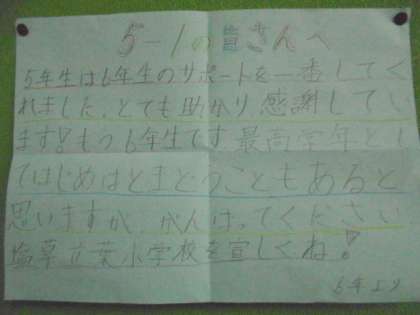 5-1の皆さんへ
5年生は6年生のサポートを一番してく
れました。とても助かり感謝してい
ます!もう6年生です最高学年とし
てはじめはとまどうこともあると
思いますが、がんばってください
塩草立葉小学校を宜しくね!
6年より